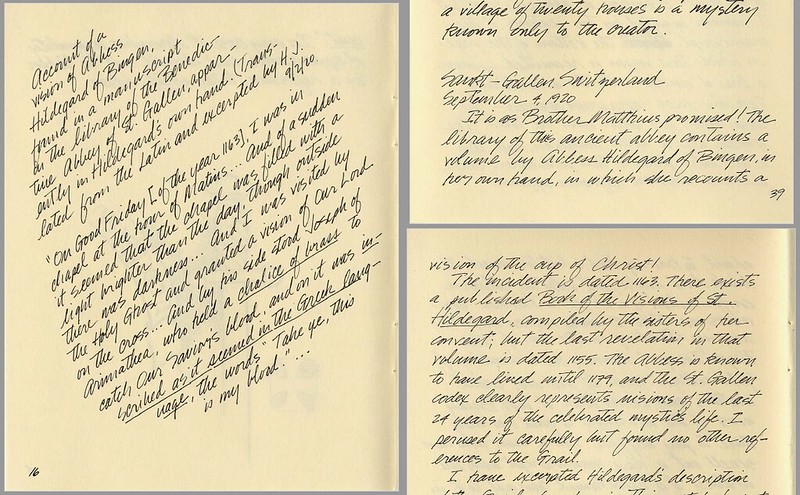 Account of a
vision of Abbess
Hildegard of Bingen,
found in a manuscript
in the library of the Benedic-
tine Abbey of St. Gallen, appar-
ently in Hildegard's own hand. (Trans-
lated from the Latin and excerpted by H.J.
9/2/20.
"On Good Friday [of the year 1163], I was in
chapel at the hour of Matins... And of a sudden
it seemed that the chapel was filled with a
light brighter than the day, though outside
there was darkness... And I was visited by
the Holy Ghost and granted a vision of Our Lord
on the cross... And by his side stood Joseph of
Arimathea, who held a chalice of brass to
catch Our Savior's blood, and on it was in-
scribed as it seemed in the Greek lang-
uage, the words "Take ye, this
is my blood."...
16
a village of twenty houses is a mystery
known only to the creator.
Sankt-Gallen, Switzerland
September 4, 1920
It is as Brother Matthius promised! The
library of this ancient abbey contains a
volume by Abbess Hildegard of Bingen, in
her own hand, in which she recounts a
39
vision of the cup of Christ!
The incident is dated 1163. There exists
a published Book of the Visions of St.
Hildegard, compiled by the sisters of her
convent; but the last revelation in that
volume is dated 1155. The Abbess is known
to have lived until 1179, and the St. Gallen
codex clearly represents visions of the last
24 years of the celebrated mystic's life. I
perused it carefully but found no other ref-
erences to the Grail.
I have excerpted Hildegard's description